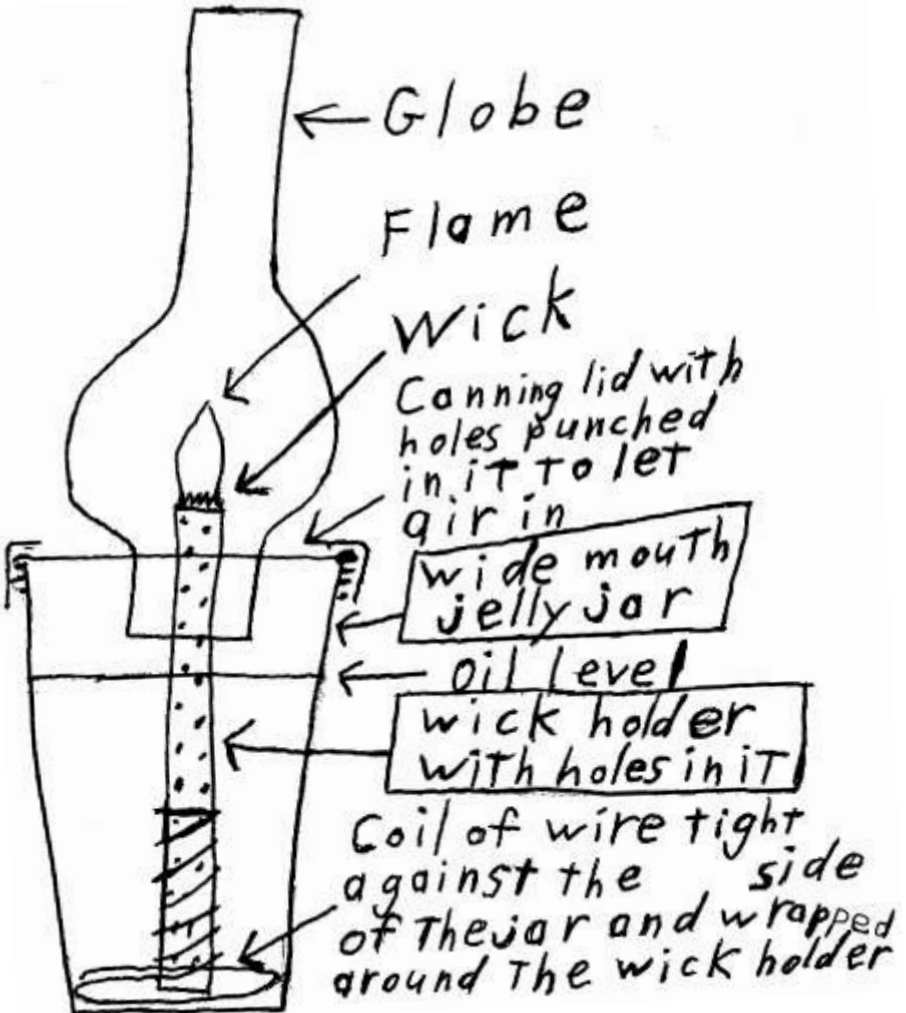 Globe
Flame
Wick
Canning lid with
holes punched
in it to let
air in
wide mouth
jelly jar
oil level
wick holder
with holes in it
Coil of wire tight
against the side
of The jar and wrapped
around The wick holder